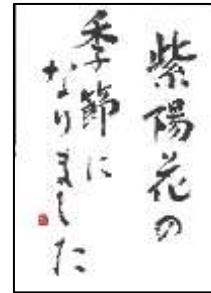 紫陽花の
季節に
なりました